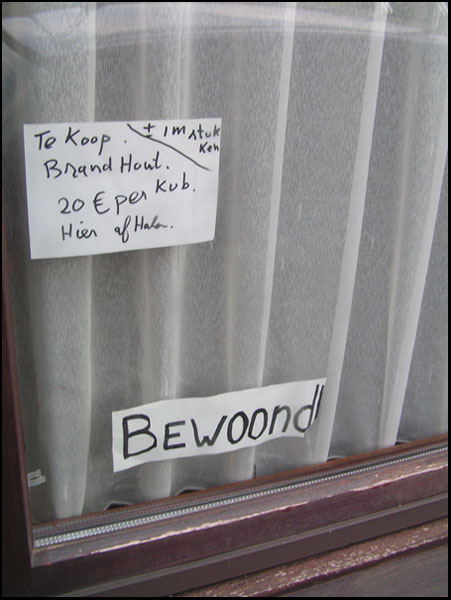 Te Koop. ± 1m stuk
Ken
Brand Hout.
20 € per Kub.
Hier af Halen.
BEWOOND